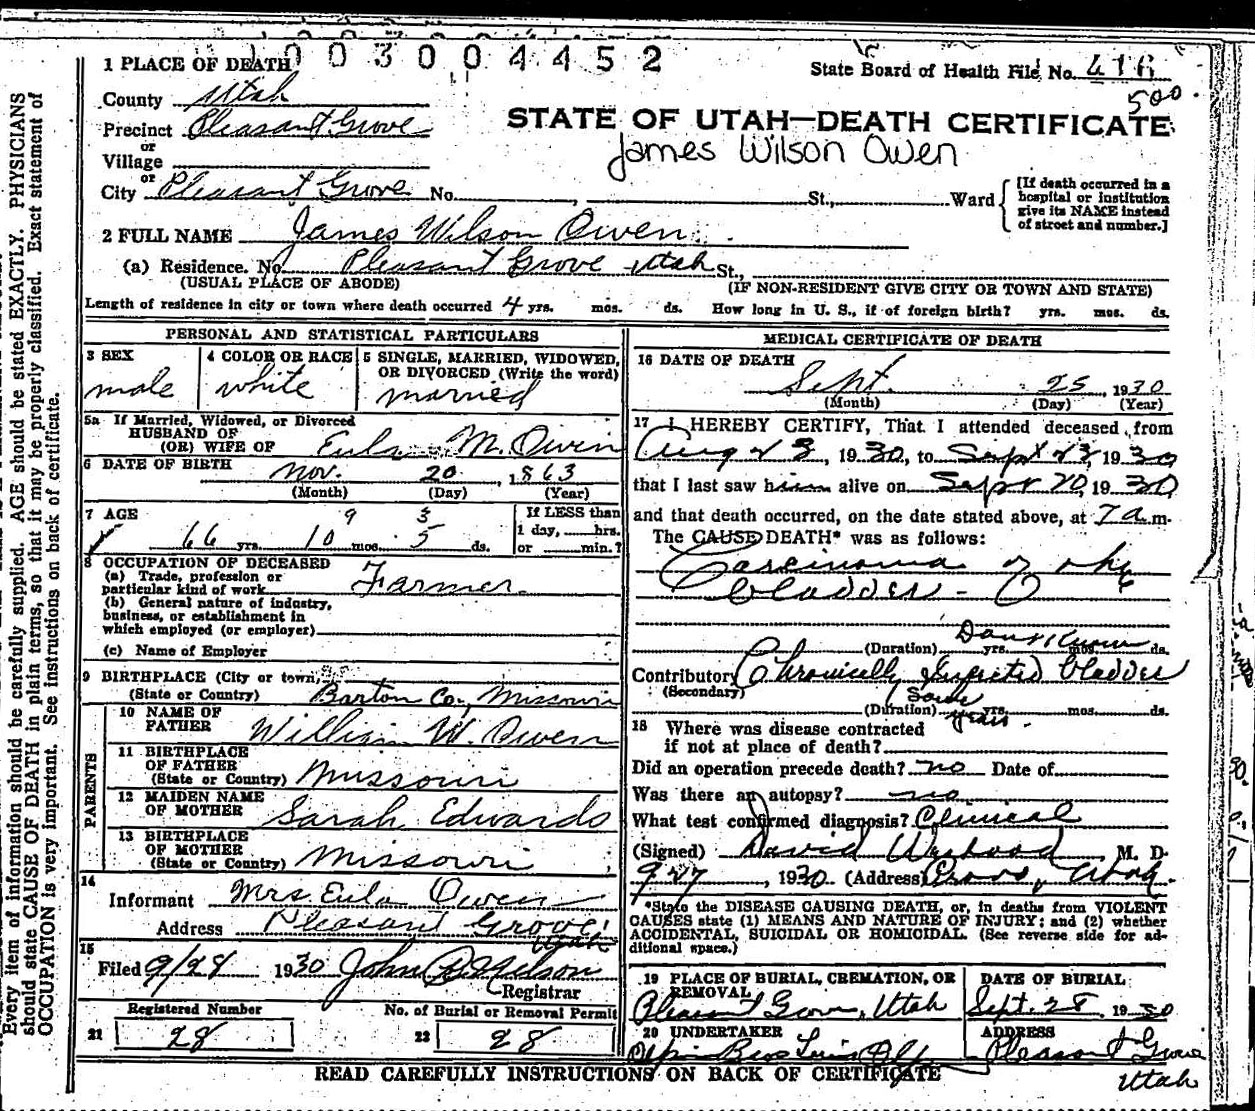 1003004452
1 PLACE OF DEATH
State Board of Health File No. 416
500
County Utah
Precinct Pleasant Grove
or
Village
or
City Pleasant Grove No. , St., Ward
[If death occurred in a
hospital or institution
give its NAME instead
of street and number.]
STATE OF UTAH—DEATH CERTIFICATE
James Wilson Owen
2 FULL NAME James Wilson Owen
(a) Residence. No. Pleasant Grove Utah St.,
(USUAL PLACE OF ABODE) (IF NON-RESIDENT GIVE CITY OR TOWN AND STATE)
Length of residence in city or town where death occurred 4 yrs. mos. ds. How long in U. S., if of foreign birth? yrs. mos. ds.
PERSONAL AND STATISTICAL PARTICULARS
3 SEX
male
4 COLOR OR RACE
white
5 SINGLE, MARRIED, WIDOWED,
OR DIVORCED (Write the word)
married
5a If Married, Widowed, or Divorced
HUSBAND OF
(OR) WIFE OF Eula M. Owen
6 DATE OF BIRTH Nov. 20, 1863
(Month) (Day) (Year)
7 AGE 9 3
66 yrs. 10 mos. 5 ds.
If LESS than
1 day, hrs.
or min.?
8 OCCUPATION OF DECEASED
(a) Trade, profession or
particular kind of work Farmer
(b) General nature of industry,
business, or establishment in
which employed (or employer)
(c) Name of Employer
9 BIRTHPLACE (City or town)
(State or Country) Barton Co, Missouri
PARENTS
10 NAME OF
FATHER William W. Owen
11 BIRTHPLACE
OF FATHER
(State or Country) Missouri
12 MAIDEN NAME
OF MOTHER Sarah Edwards
13 BIRTHPLACE
OF MOTHER
(State or Country) Missouri
14
Informant Mrs Eula Owen
Address Pleasant Grove
Utah
15
Filed 9/28 1930 John Nelson
Registrar
Registered Number
21 28
No. of Burial or Removal Permit
22 28
MEDICAL CERTIFICATE OF DEATH
16 DATE OF DEATH
Sept. 25, 1930
(Month) (Day) (Year)
17 I HEREBY CERTIFY, That I attended deceased from
Aug 23, 1930, to Sept 23, 1930
that I last saw him alive on Sept 20, 1930
and that death occurred, on the date stated above, at 7 a m.
The CAUSE DEATH* was as follows:
Carcinoma of the
bladder
(Duration) Don't Know yrs. mos. ds.
Contributory Chronically Infected bladder
(Secondary)
(Duration) Some years yrs. mos. ds.
18 Where was disease contracted
if not at place of death?
Did an operation precede death? no Date of
Was there an autopsy? no
What test confirmed diagnosis? Clinical
(Signed) David Westwood M. D.
9 27, 1930 (Address) Provo, Utah
*State the DISEASE CAUSING DEATH, or, in deaths from VIOLENT
CAUSES state (1) MEANS AND NATURE OF INJURY; and (2) whether
ACCIDENTAL, SUICIDAL OR HOMICIDAL. (See reverse side for ad-
ditional space.)
19 PLACE OF BURIAL, CREMATION, OR
REMOVAL
Pleasant Grove, Utah
DATE OF BURIAL
Sept. 28 1930
20 UNDERTAKER
Bros
ADDRESS
Pleasant Grove
Utah
READ CAREFULLY INSTRUCTIONS ON BACK OF CERTIFICATE
Every item of information should be carefully supplied. AGE should be stated EXACTLY. PHYSICIANS
should state CAUSE OF DEATH in plain terms, so that it may be properly classified. Exact statement of
OCCUPATION is very important. See instructions on back of certificate.